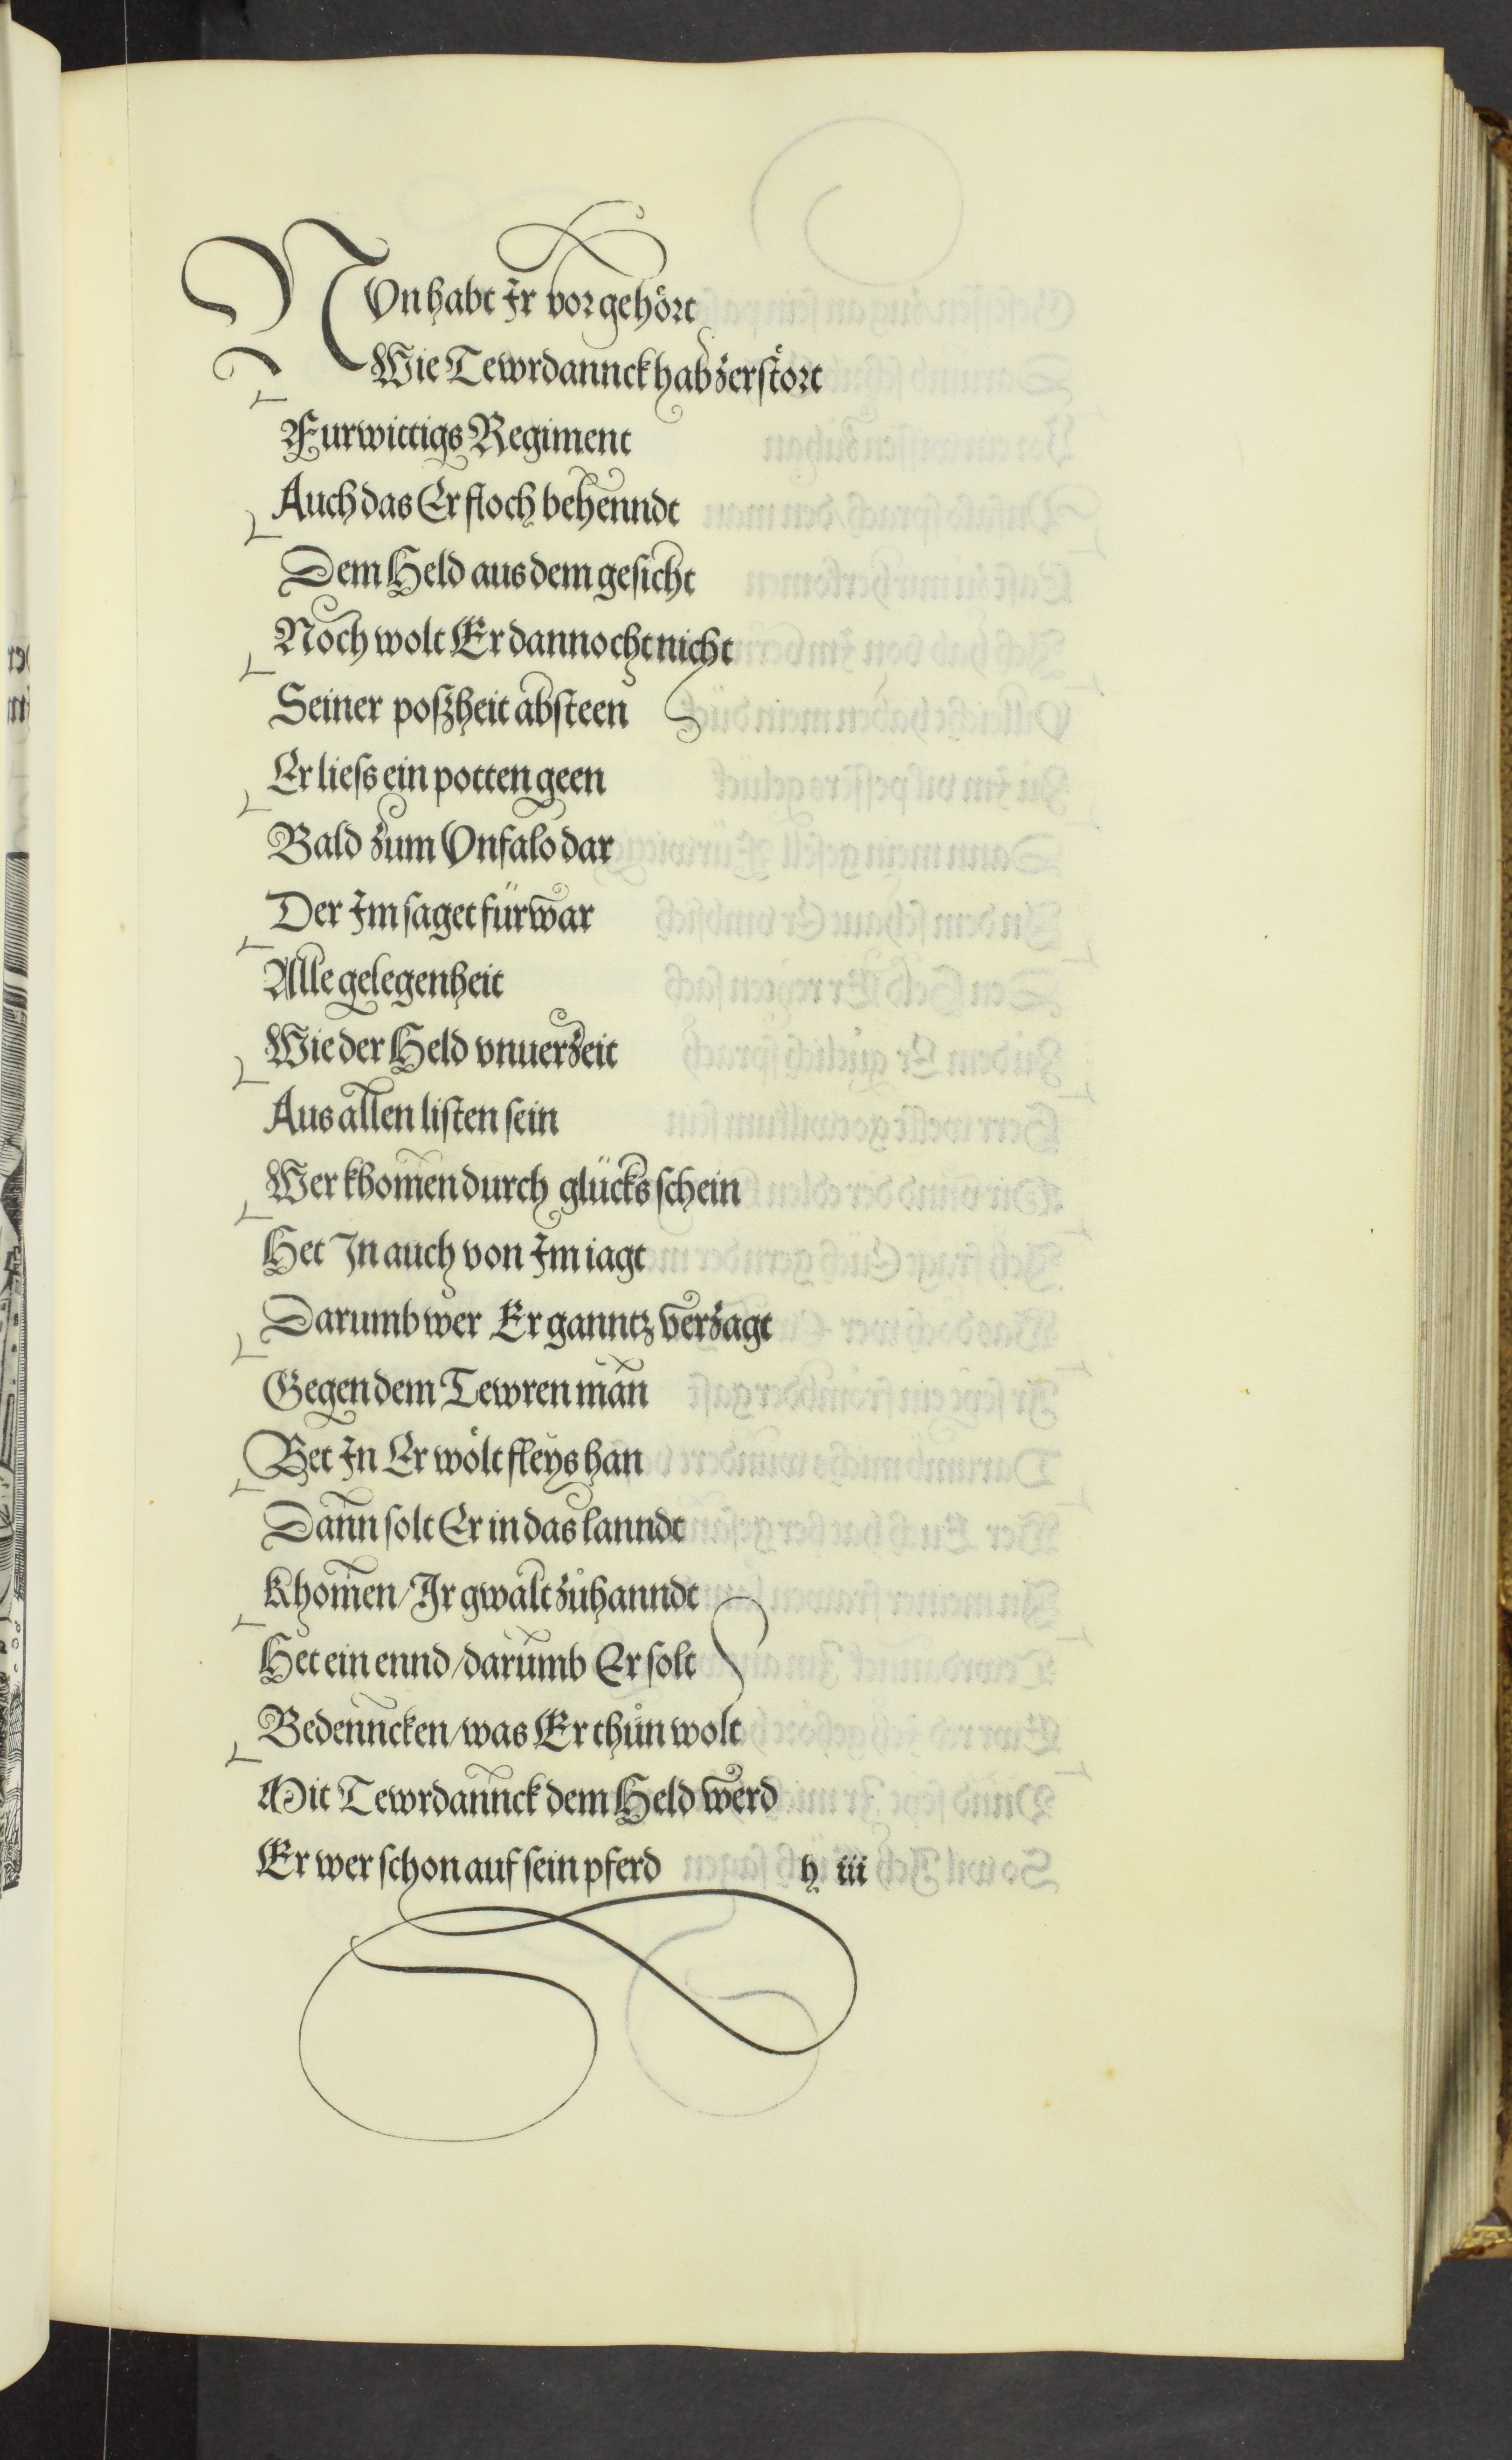 NVn habt Ir vor gehört
Wie Tewrdannck hab zerstört
Furwittigs Regiment
Auch das Er floch behenndt
Dem Held aus dem gesicht
Noch wolt Er dannocht nicht
Seiner poszheit absteen
Er liess ein potten geen
Bald zum Vnfalo dar
Der Im saget fürwar
Alle gelegenheit
Wie der Held vnuerzeit
Aus allen listen sein
Wer khomen durch glücks schein
Het In auch von Im iagt
Darumb wer Er ganntz verzagt
Gegen dem Tewren man
Bet In Er wölt fleys han
Dann solt Er in das lanndt
Khomen / Ir gwalt zůhanndt
Het ein ennd / darumb Er solt
Bedenncken / was Er thůn wolt
Mit Tewrdannck dem Held werd
Er wer schon auf sein pferd h iii